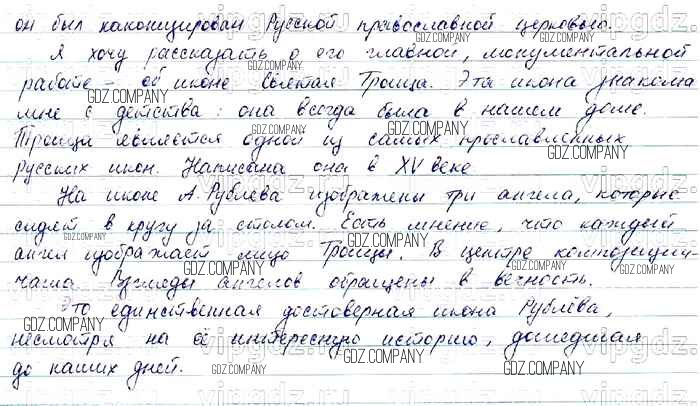 он был канонизирован Русской православной церковью.
Я хочу рассказать о его главной, монументальной
работе - об иконе Святая Троица. Эта икона знакома
мне с детства: она всегда была в нашем доме.
Троица является одной из самых прославленных
русских икон. Написана она в XV веке
На иконе А. Рублева изображены три ангела, которые
сидят в кругу за столом. Есть мнение, что каждый
ангел изображает лицо Троицы. В центре композиции-
чаша Взгляды ангелов обращены в вечность.
Это единственная достоверная икона Рублёва,
несмотря на её интересную историю, дошедшая
до наших дней.
GDZ.COMPANY
vipgdz.ru